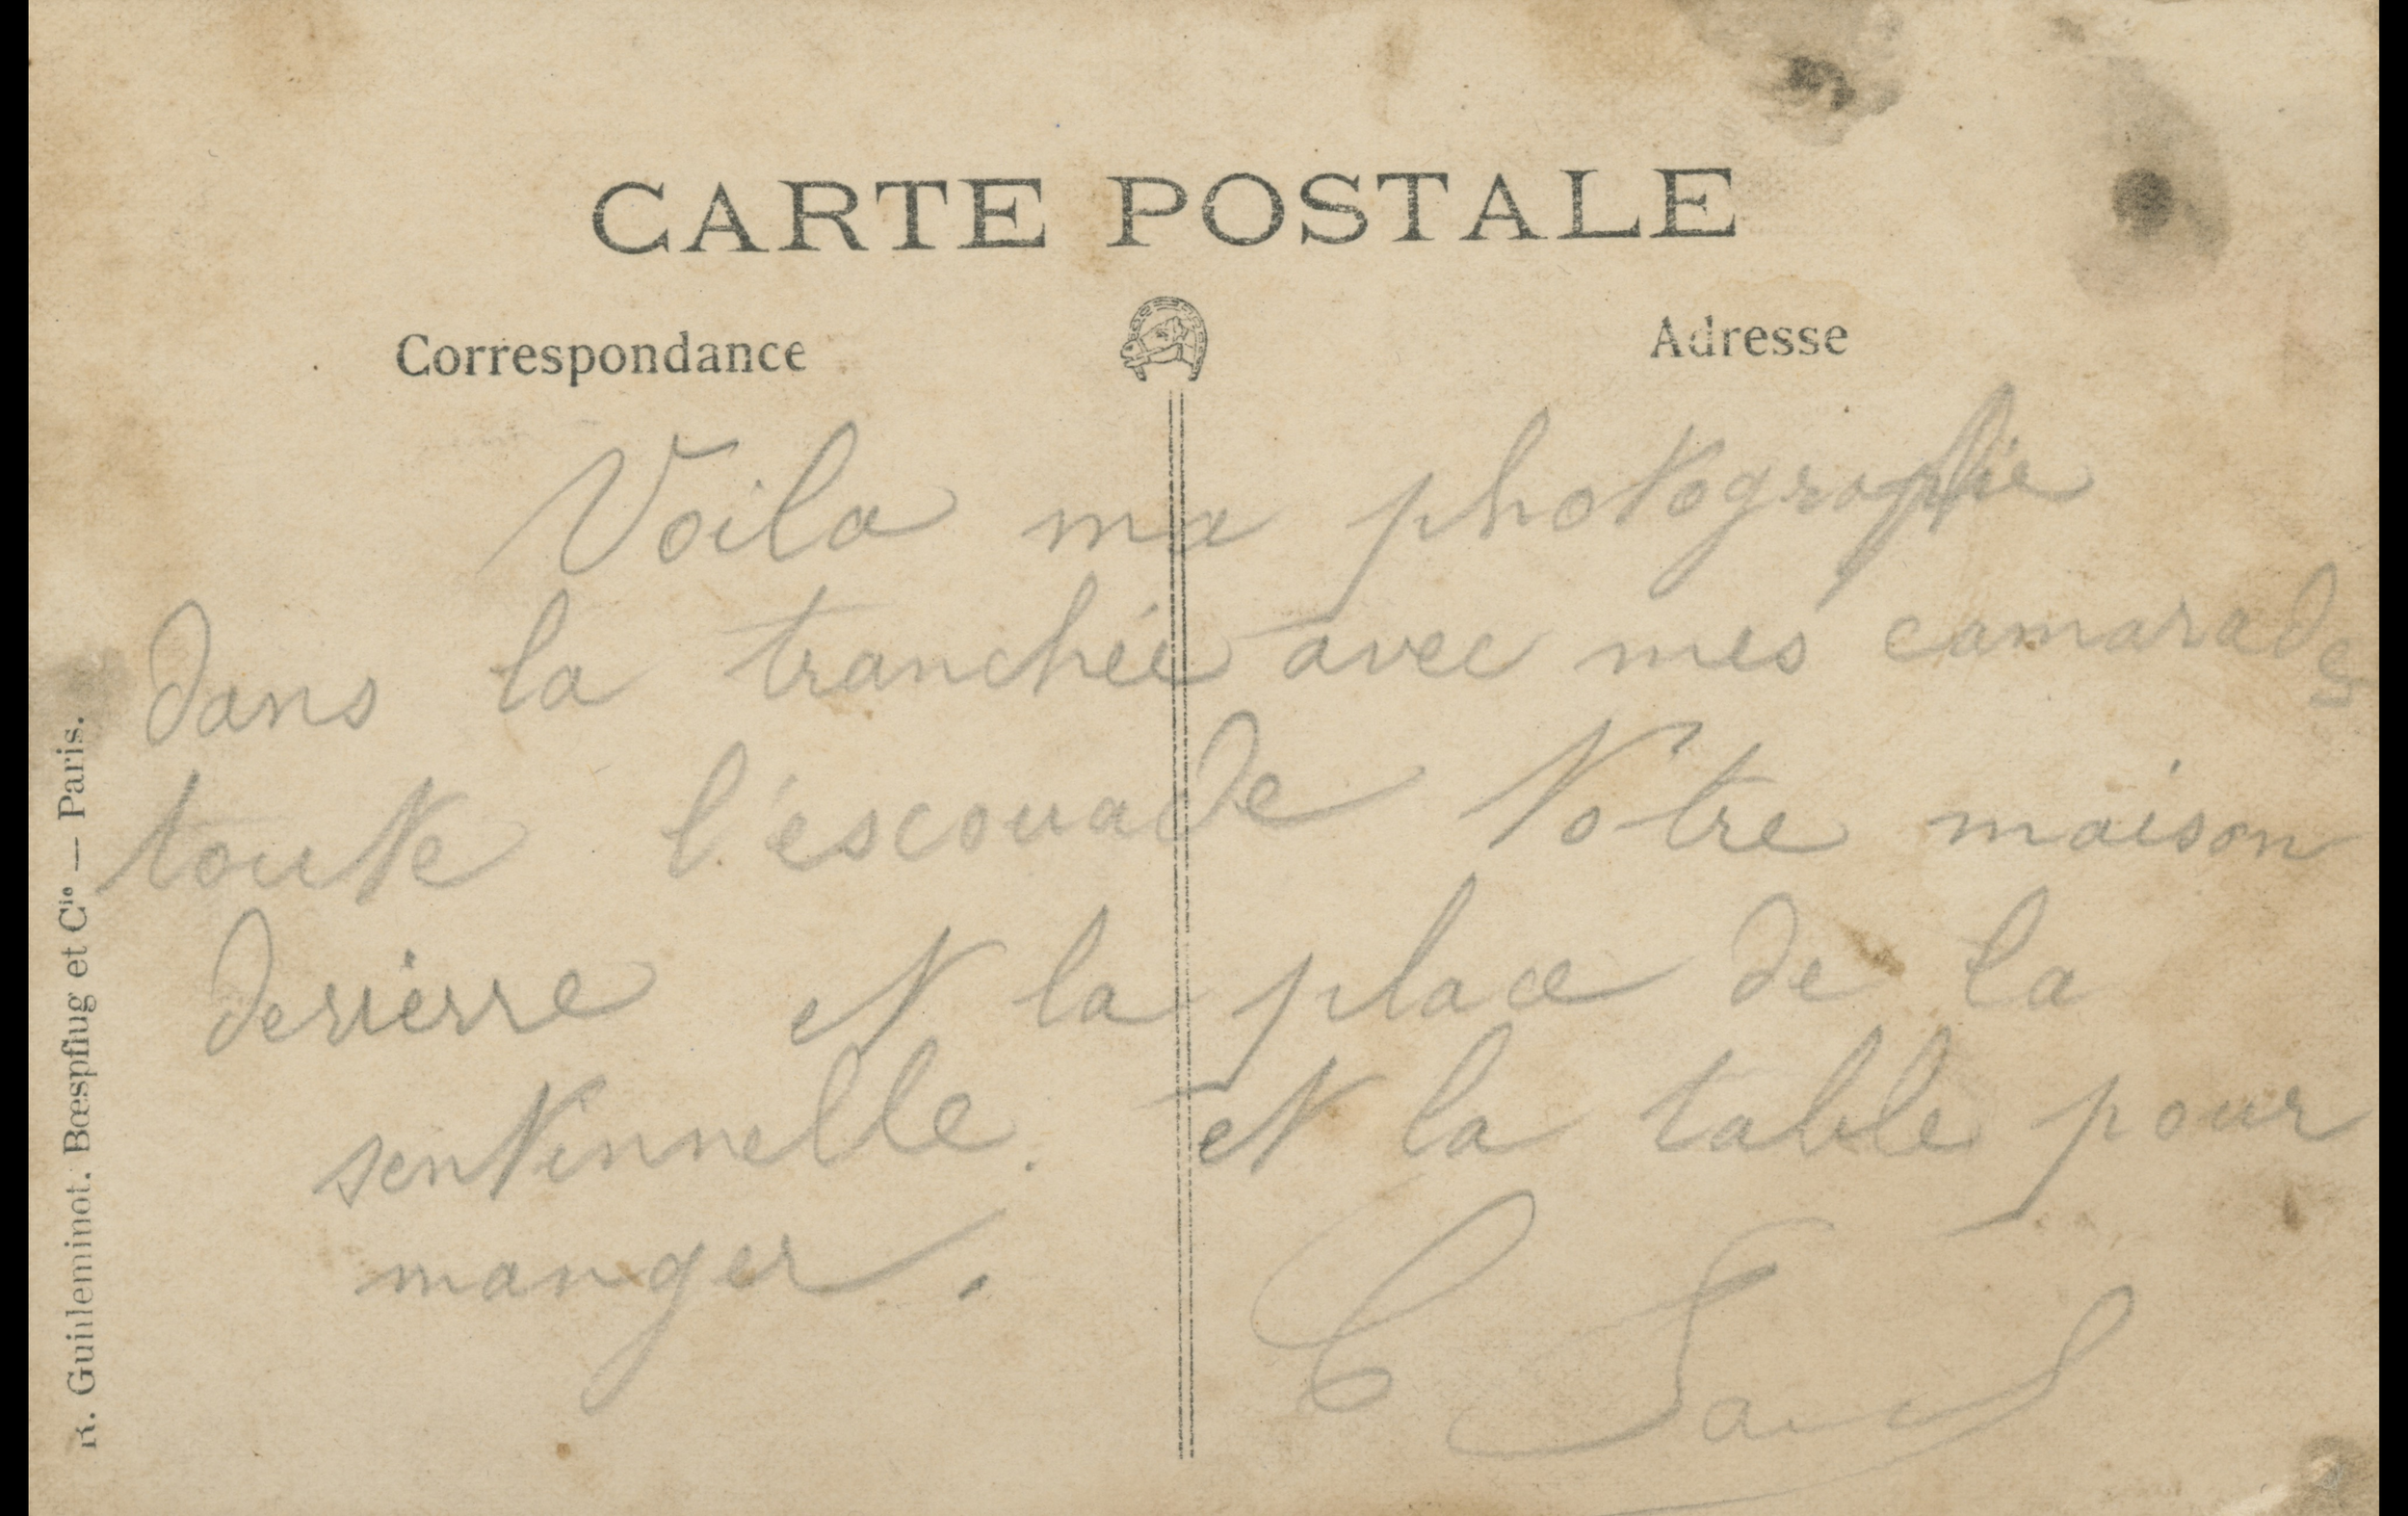 CARTE POSTALE
Correspondance
Adresse
Voila ma photographie
dans la tranchée avec mes camarades
toute l'éscouade Notre maison
derrierre et la place de la
sentinnelle. et la table pour
manger.
R. Guilleminot. Bœspflug et Cie — Paris.